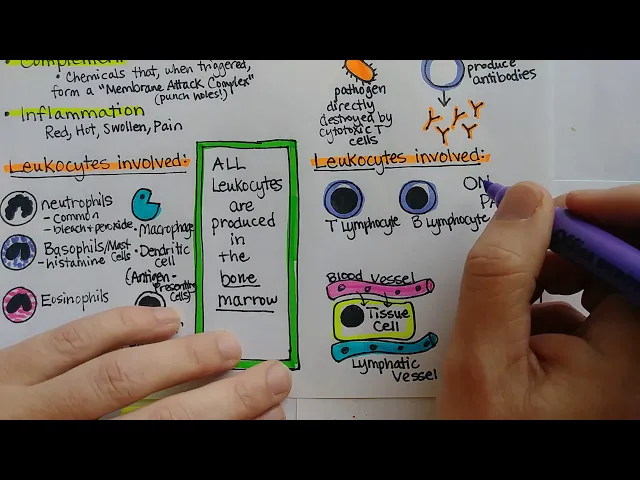 • Complement
• Chemicals that, when triggered,
form a "Membrane Attack Complex"
(punch holes!)
• Inflammation
Red, Hot, Swollen, Pain
Leukocytes involved:
neutrophils
- common
- bleach + peroxide
Basophils/Mast
- histamine Cells
Eosinophils
• Macrophage
• Dendritic
cell
(Antigen-
Presenting
Cells)
ALL
Leukocytes
are
produced
in
the
bone
marrow
pathogen
directly
destroyed by
cytotoxic T
cells
produce
antibodies
Leukocytes involved:
T Lymphocyte
B Lymphocyte
ON
PA
Blood Vessel
Tissue
Cell
Lymphatic
Vessel